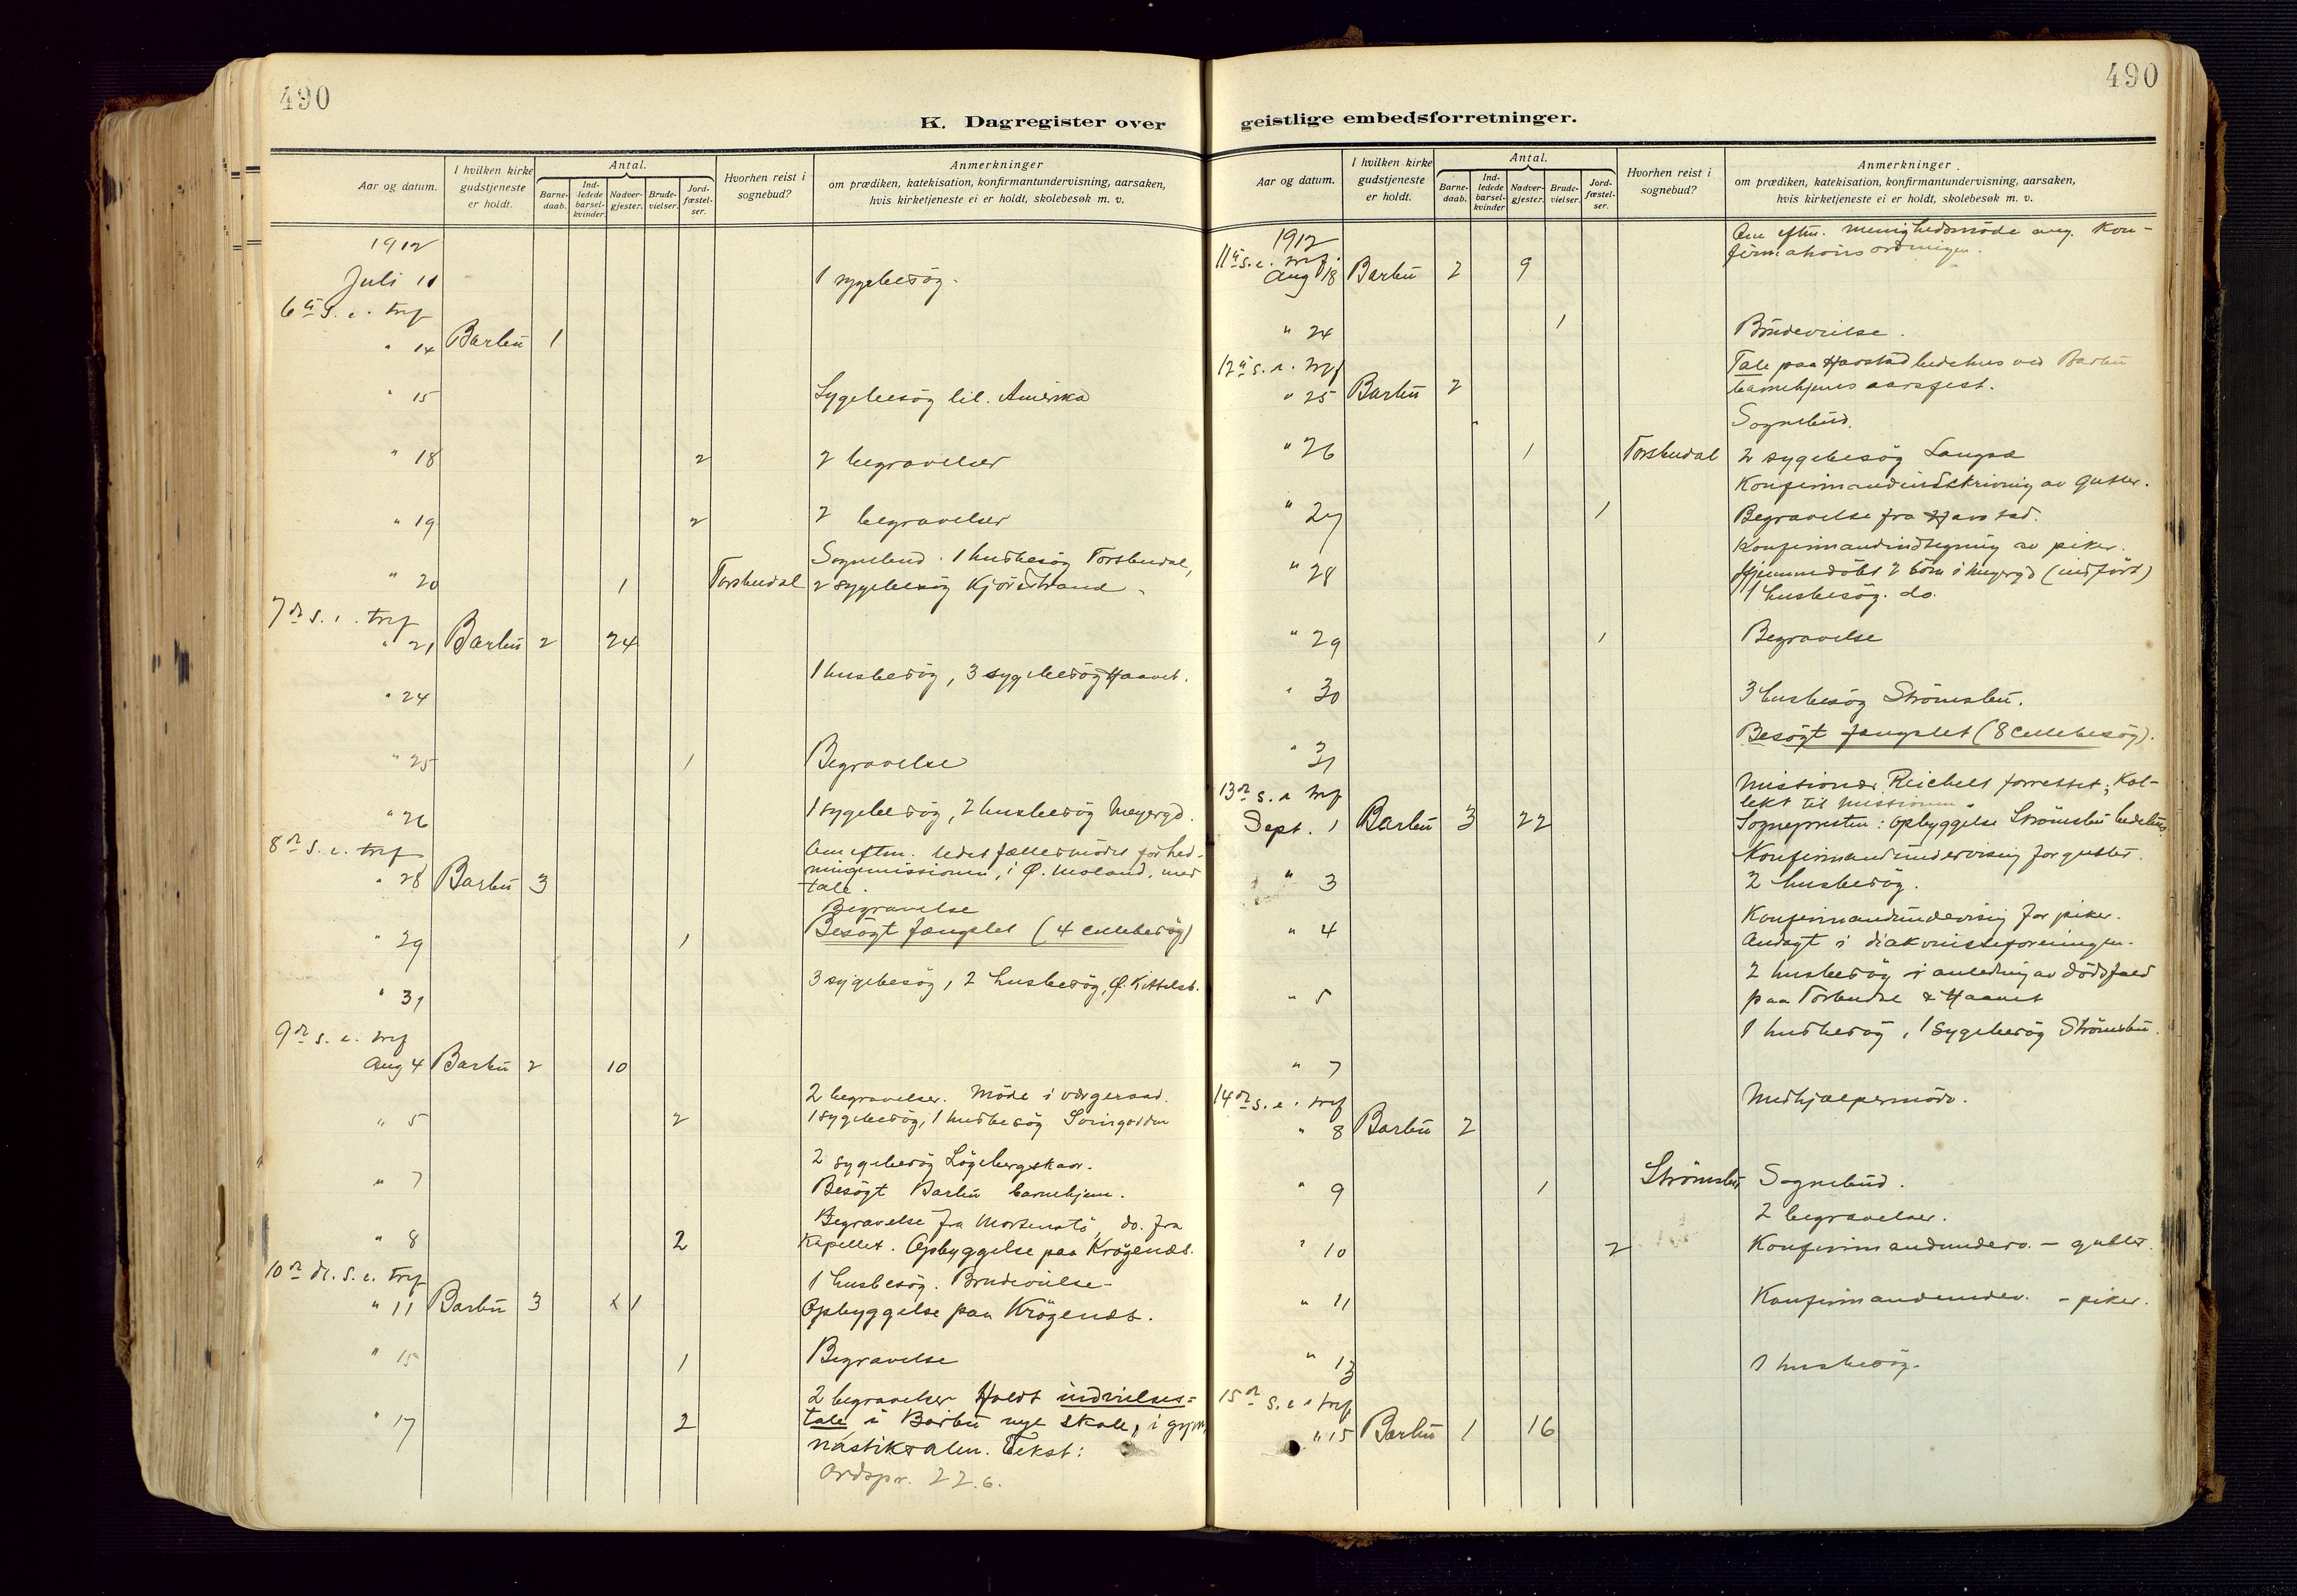 490
K. Dagregister over
Aar og datum.
I hvilken kirke gudstjeneste er holdt.
Antal.
Barne-daab.
Ind-ledede barsel-kvinder.
Nadver-gjester.
Brude-vielser.
Jord-fæstel-ser.
Hvorhen reist i sognebud?
Anmerkninger
om prædiken, katekisation, konfirmantundervisning, aarsaken,
hvis kirketjeneste ei er holdt, skolebesøk m. v.
1912
Juli 11 1 sygebesög.
6te S. e. tref
" 14 Barbu 1
" 15 Sygebesög lil. Amerika
" 18 2 2 begravelser
" 19 2 2 begravelser
Sognebud. 1 husbesög Torsbudal,
" 20 1 Torsbudal 2 sygebesög Kjörstrand
7de S. e. tref
" 21 Barbu 2 24
1 husbesög, 3 sygebesög Haavet.
" 24
" 25 1 Begravelse
" 26 1 sygebesög, 2 husbesög Meyergd.
8de S. e. tref
Om eftm. ledet fællesmödet for hed-
" 28 Barbu 3 ningemissionen, i Ø. Moland, med
tale.
Begravelse
" 29 1 Besögt fængslet (4 cellebesög)
" 31 3 sygebesög, 2 husbesög, Ø. Kittelsb.
9de S. e. tref
Aug 4 Barbu 2 10
2 begravelser. Möde i værgeraad.
" 5 2 1 sygebesög, 1 husbesög
2 sygebesög
" 7 Besögt Barbu barnehjem.
Begravelse fra Mortenstö, do. fra
" 8 2 Kapellet. Opbyggelse paa Krögenes.
10de S. e. tref
1 husbesög. Brudevielse
" 11 Barbu 3 1 Opbyggelse paa Krögenes.
" 15 1 Begravelse
2 begravelser Holdt indvielses-
" 17 2 tale i Barbu nye skole, i gym-
nastiksalen. Tekst:
Ordspr. 22.6.
490
geistlige embedsforretninger.
Aar og datum.
I hvilken kirke gudstjeneste er holdt.
Antal.
Barne-daab.
Ind-ledede barsel-kvinder
Nadver-gjester.
Brude-vielser.
Jord-fæstel-ser.
Hvorhen reist i sognebud?
Anmerkninger
om prædiken, katekisation, konfirmantundervisning, aarsaken,
hvis kirketjeneste ei er holdt, skolebesøk m. v.
1912
Om eftm. menighedsmöde ang. Kon-
11te S. e. tref. firmationsordningen.
Aug 18 Barbu 2 9
" 24 1 Brudevielse.
12te S. e. tref
Tale paa Harstad bedehus ved Barbu
" 25 Barbu 2 barnehjems aarsfest.
Sognebud.
" 26 1 Torsbudal 2 sygebesög Langsæ
Konfirmandindskrivning av gutter.
" 27 1 Begravelse fra Harstad.
Konfirmandindtegning av piker.
" 28 Hjemmedöbt 2 börn i Meyergd (indfört)
1 husbesög. do.
" 29 1 Begravelse
" 30 3 husbesög Strömsbu.
" 31 Besögt fængslet (8 cellebesög).
13de S. e. tref
Missionær Reichelt forrettet; Kol-
lekt til missionen.
Sept. 1 Barbu 3 22 Sognepresten: Opbyggelse Strömsbu bedehus.
Konfirmandundervisning for gutter.
" 3 2 husbesög.
Konfirmandundervisning for piker.
" 4 Andagt i diakonisseforeningen.
2 husbesög i anledning av dödsfald
" 5 paa & Haavet
1 husbesög, 1 sygebesög Strömsbu.
" 7
14de S. e. tref
Medhjælpermöde.
" 8 Barbu 2
" 9 1 Strömsbu Sognebud.
2 begravelser.
" 10 2 Konfirmandunderv. - gutter.
" 11 Konfirmandunderv. - piker.
" 13 1 husbesög.
15de S. e. tref
" 15 Barbu 1 16